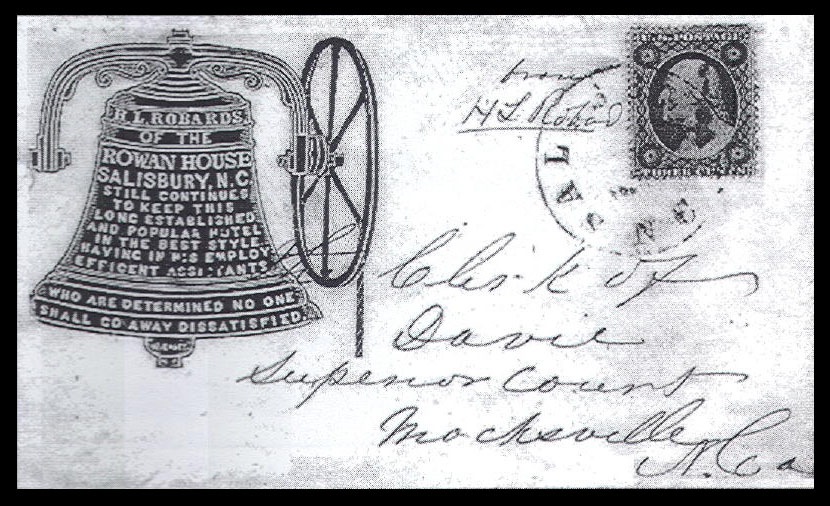 H. L. ROBARDS,
OF THE
ROWAN HOUSE
SALISBURY, N.C.
STILL CONTINUES
TO KEEP THIS
LONG ESTABLISHED
AND POPULAR HOTEL
IN THE BEST STYLE
HAVING IN HIS EMPLOY
EFFICENT ASSISTANTS
WHO ARE DETERMINED NO ONE
SHALL GO AWAY DISSATISFIED.
H L Robards
U.S. POSTAGE
THREE CENTS
SAL
N.C.
Clerk of
Davie
Superior Court
Mocksville
N. Ca